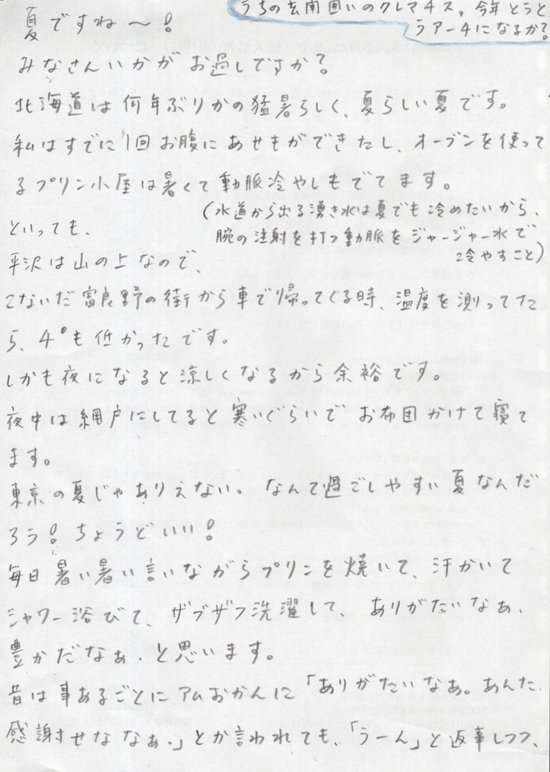 うちの玄関囲いのクレマチス。今年とうとう
アーチになるか？
夏ですね〜！
みなさんいかがお過しですか？
北海道は何年ぶりかの猛暑らしく、夏らしい夏です。
私はすでに1回お腹にあせもができたし、オーブンを使って
るプリン小屋は暑くて動脈冷やしもでてます。
（水道から出る湧き水は夏でも冷めたいから、
腕の注射を打つ動脈をジャージャー水で
冷やすこと）
といっても、
平沢は山の上なので、
こないだ富良野の街から車で帰ってくる時、温度を測ってた
ら、4°も低かったです。
しかも夜になると涼しくなるから余裕です。
夜中は網戸にしてると寒いぐらいでお布団かけて寝て
ます。
東京の夏じゃありえない。なんて過ごしやすい夏なんだ
ろう！ちょうどいい！
毎日暑い暑い言いながらプリンを焼いて、汗かいて
シャワー浴びて、ザブザブ洗濯して、ありがたいなぁ、
豊かだなぁ、と思います。
昔は事あるごとにアムおかんに「ありがたいなぁ。あんた、
感謝せななぁ。」とか言われても、「うーん」と返事しつつ、